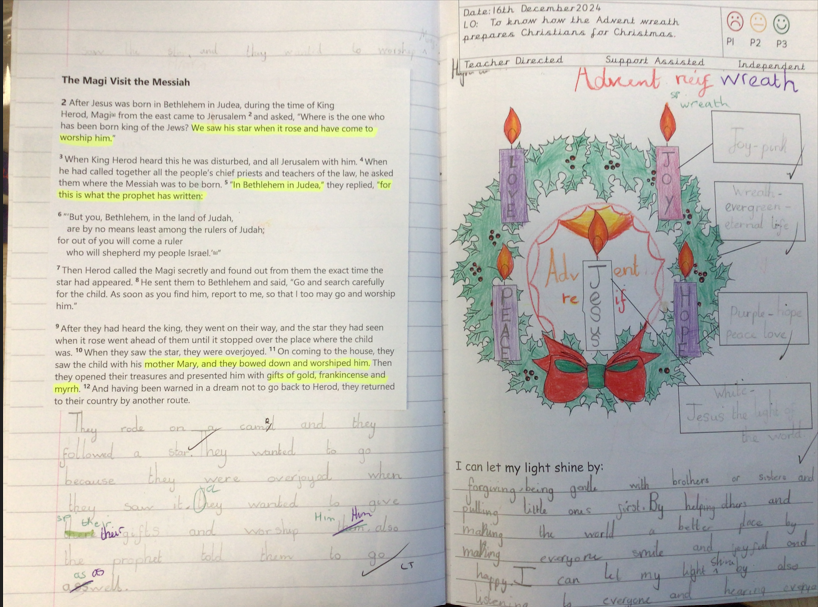 saw the star and they wanted to worship
The Magi Visit the Messiah
2 After Jesus was born in Bethlehem in Judea, during the time of King
Herod, Magi from the east came to Jerusalem 2 and asked, “Where is the one who
has been born king of the Jews? We saw his star when it rose and have come to
worship him.”
3 When King Herod heard this he was disturbed, and all Jerusalem with him. 4 When
he had called together all the people’s chief priests and teachers of the law, he asked
them where the Messiah was to be born. 5 “In Bethlehem in Judea,” they replied, “for
this is what the prophet has written:
6 “‘But you, Bethlehem, in the land of Judah,
are by no means least among the rulers of Judah;
for out of you will come a ruler
who will shepherd my people Israel.’”
7 Then Herod called the Magi secretly and found out from them the exact time the
star had appeared. 8 He sent them to Bethlehem and said, “Go and search carefully
for the child. As soon as you find him, report to me, so that I too may go and worship
him.”
9 After they had heard the king, they went on their way, and the star they had seen
when it rose went ahead of them until it stopped over the place where the child
was. 10 When they saw the star, they were overjoyed. 11 On coming to the house, they
saw the child with his mother Mary, and they bowed down and worshiped him. Then
they opened their treasures and presented him with gifts of gold, frankincense and
myrrh. 12 And having been warned in a dream not to go back to Herod, they returned
to their country by another route.
They rode on a camel and they
followed a star. They wanted to go
because they were overjoyed when
they saw it. They wanted to give
sp their
their gifts and worship Him Him also
the prophet told them to go
as as
aswell.
LT
Date: 16th December 2024
LO: To know how the Advent wreath
prepares Christians for Christmas.
P1 P2 P3
Teacher Directed Support Assisted Independent
Advent reif wreath
wreath
LOVE
JOY
Joy-pink
Wreath-
evergreen-
eternal life
Advent
re if
Jesus
PEACE
HOPE
Purple-hope
Peace love
white-
Jesus the light of
the world
I can let my light shine by:
forgiving being gentle with brothers or sisters and
putting little ones first. By helping others and
making the world a better place by
making everyone smile and joyful and
happy. I can let my light shine by also
listening to everyone and hearing